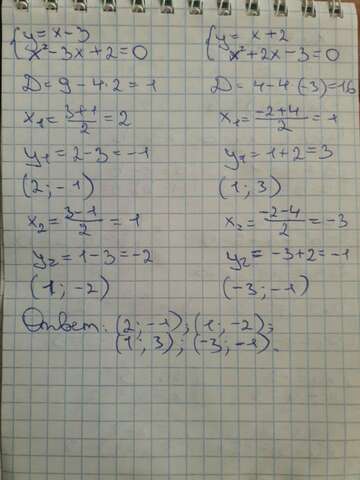 {y = x - 3
x² - 3x + 2 = 0
D = 9 - 4·2 = 1
x₁ = (3+1)/2 = 2
y₁ = 2 - 3 = -1
(2; -1)
x₂ = (3-1)/2 = 1
y₂ = 1 - 3 = -2
(1; -2)
{y = x + 2
x² + 2x - 3 = 0
D = 4 - 4·(-3) = 16
x₁ = (-2+4)/2 = 1
y₁ = 1 + 2 = 3
(1; 3)
x₂ = (-2-4)/2 = -3
y₂ = -3 + 2 = -1
(-3; -1)
Ответ: (2; -1); (1; -2);
(1; 3); (-3; -1).